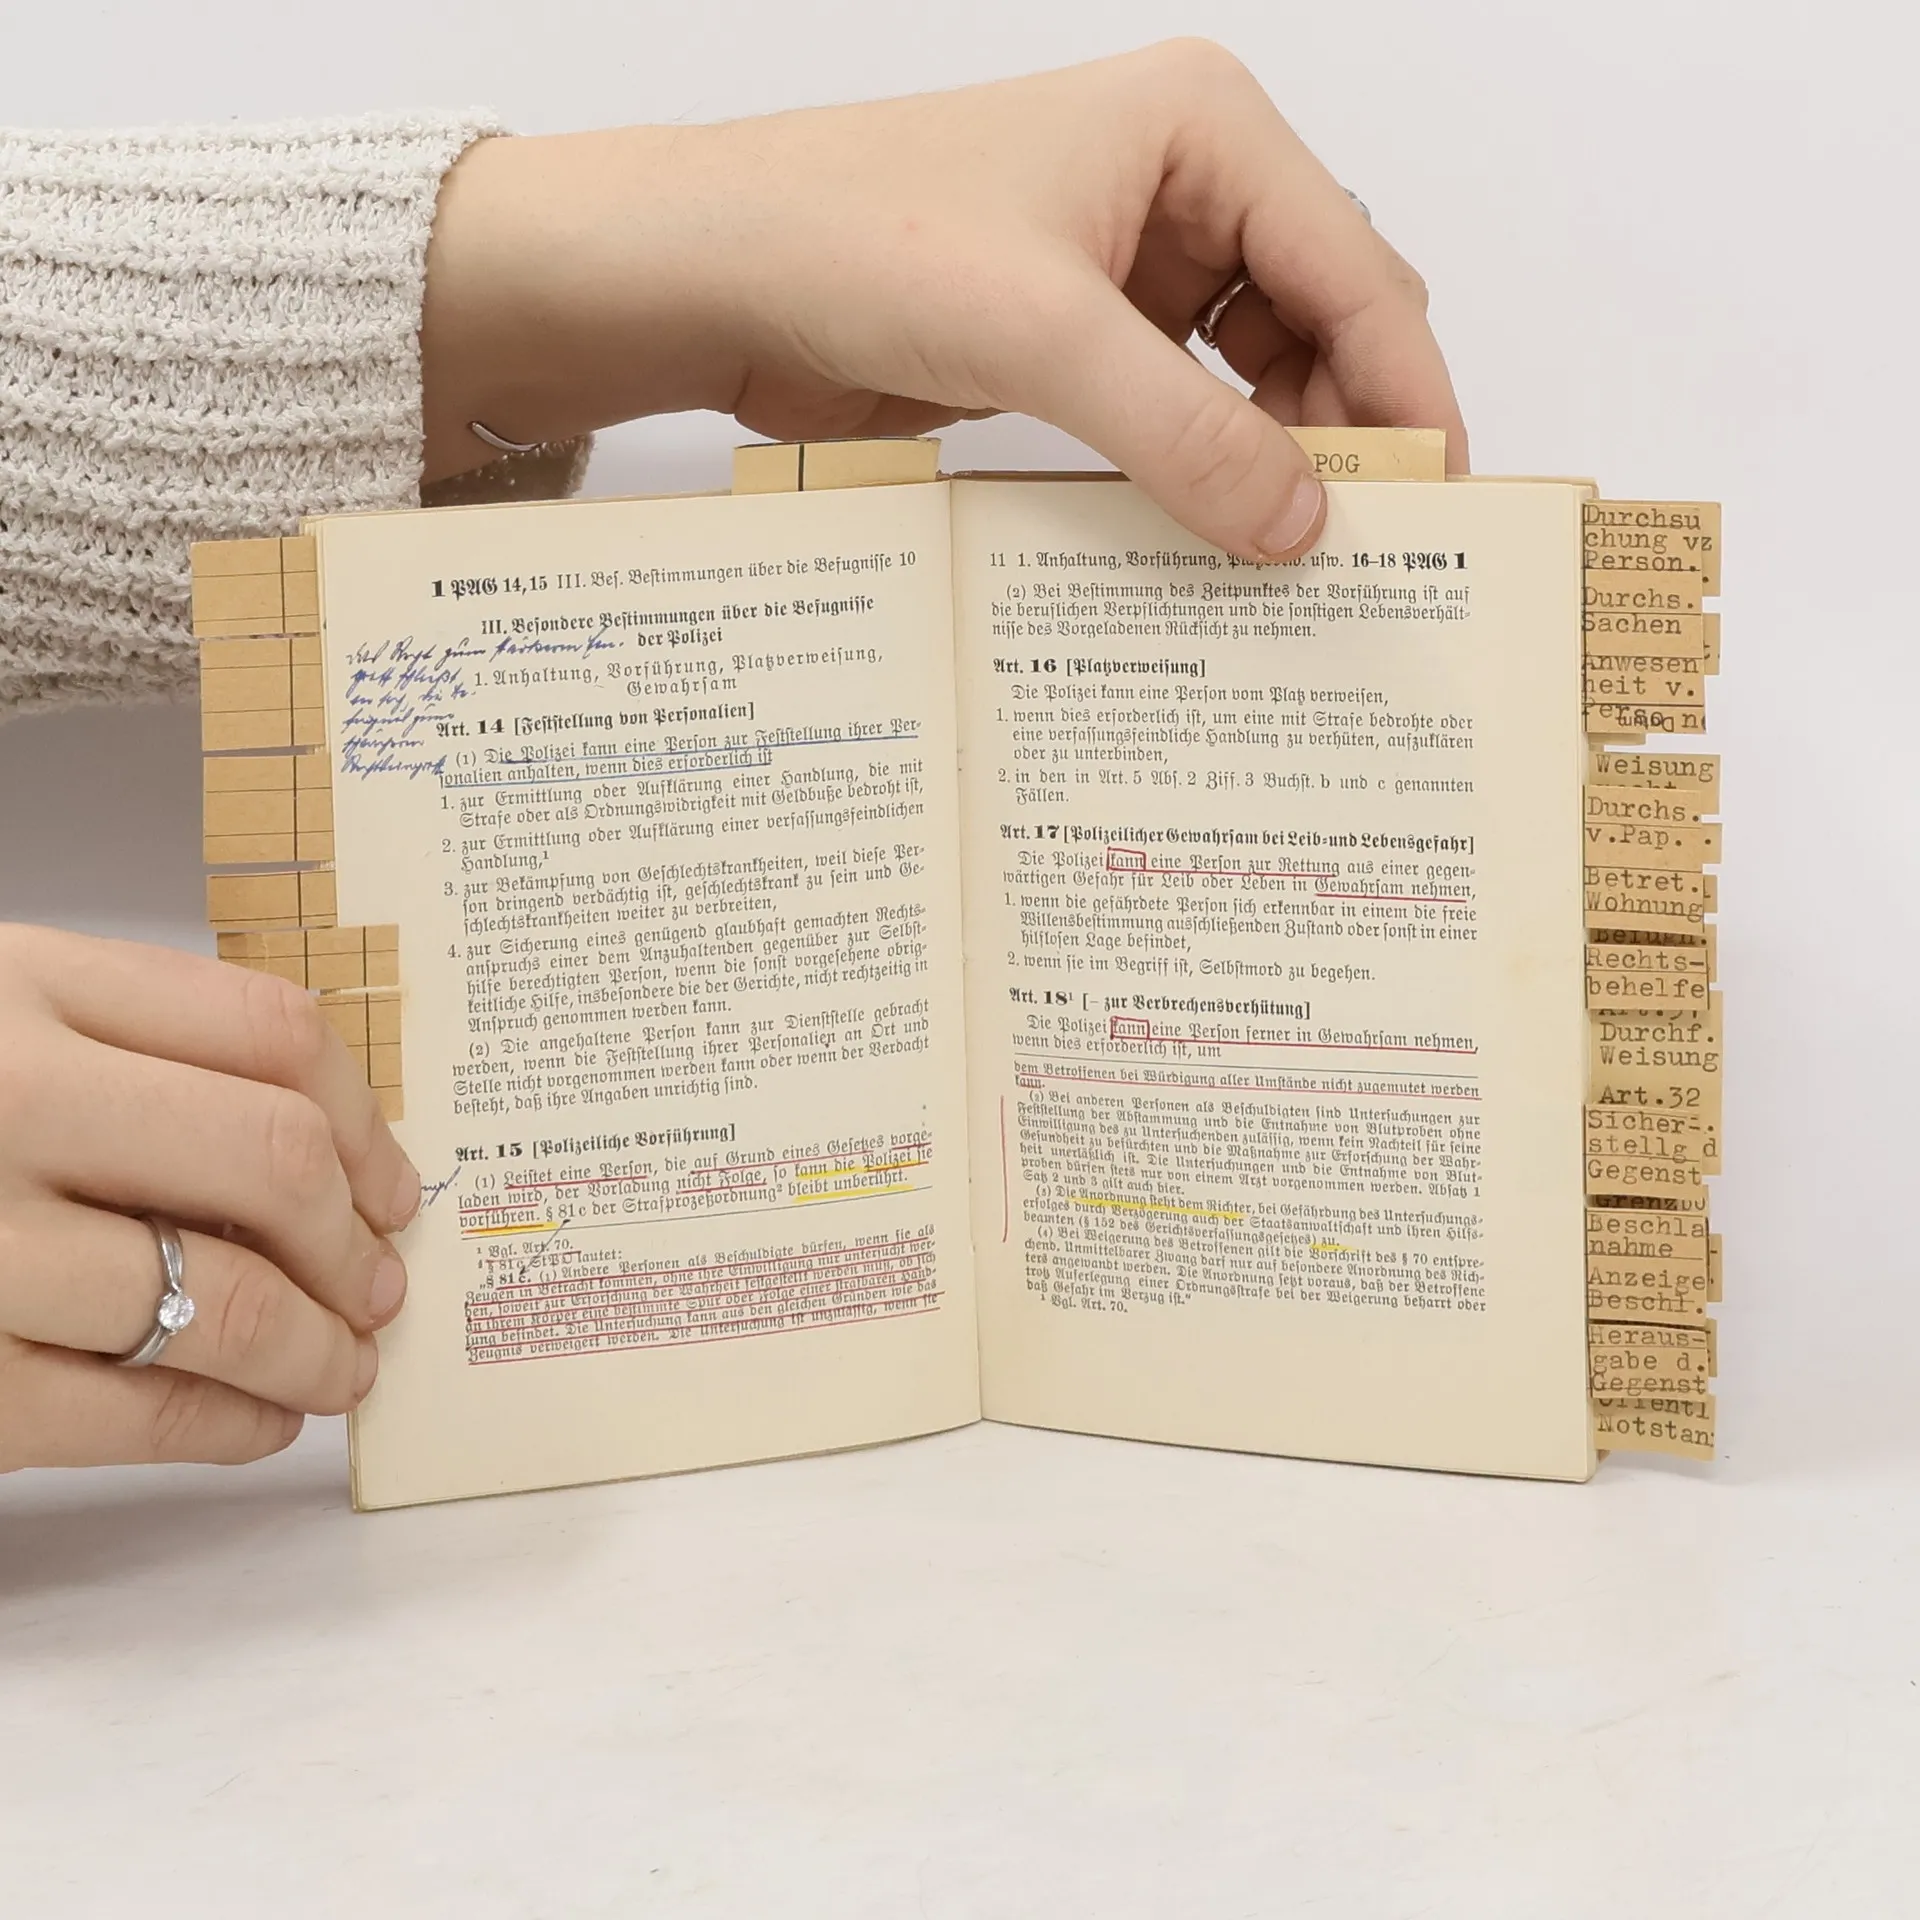 POG
1 PAG 14,15 III. Bes. Bestimmungen über die Befugnisse 10
III. Besondere Bestimmungen über die Befugnisse
der Polizei
das Recht zum
1. Anhaltung, Vorführung, Platzverweisung,
Gewahrsam
Art. 14 [Feststellung von Personalien]
(1) Die Polizei kann eine Person zur Feststellung ihrer Per-
sonalien anhalten, wenn dies erforderlich ist
1. zur Ermittlung oder Aufklärung einer Handlung, die mit
Strafe oder als Ordnungswidrigkeit mit Geldbuße bedroht ist,
2. zur Ermittlung oder Aufklärung einer verfassungsfeindlichen
Handlung,¹
3. zur Bekämpfung von Geschlechtskrankheiten, weil diese Per-
son dringend verdächtig ist, geschlechtskrank zu sein und Ge-
schlechtskrankheiten weiter zu verbreiten,
4. zur Sicherung eines genügend glaubhaft gemachten Rechts-
anspruchs einer dem Anzuhaltenden gegenüber zur Selbst-
hilfe berechtigten Person, wenn die sonst vorgesehene obrig-
keitliche Hilfe, insbesondere die der Gerichte, nicht rechtzeitig in
Anspruch genommen werden kann.
(2) Die angehaltene Person kann zur Dienststelle gebracht
werden, wenn die Feststellung ihrer Personalien an Ort und
Stelle nicht vorgenommen werden kann oder wenn der Verdacht
besteht, daß ihre Angaben unrichtig sind.
Art. 15 [Polizeiliche Vorführung]
(1) Leistet eine Person, die auf Grund eines Gesetzes vorge-
laden wird, der Vorladung nicht Folge, so kann die Polizei sie
vorführen. § 81c der Strafprozeßordnung² bleibt unberührt.
¹ Vgl. Art. 70.
² § 81c StPO lautet:
„§ 81c. (1) Andere Personen als Beschuldigte dürfen, wenn sie als
Zeugen in Betracht kommen, ohne ihre Einwilligung nur untersucht wer-
den, soweit zur Erforschung der Wahrheit festgestellt werden muß, ob sich
an ihrem Körper eine bestimmte Spur oder Folge einer strafbaren Hand-
lung befindet. Die Untersuchung kann aus den gleichen Gründen wie das
Zeugnis verweigert werden. Die Untersuchung ist unzulässig, wenn sie
11 1. Anhaltung, Vorführung, usw. 16–18 PAG 1
(2) Bei Bestimmung des Zeitpunktes der Vorführung ist auf
die beruflichen Verpflichtungen und die sonstigen Lebensverhält-
nisse des Vorgeladenen Rücksicht zu nehmen.
Art. 16 [Platzverweisung]
Die Polizei kann eine Person vom Platz verweisen,
1. wenn dies erforderlich ist, um eine mit Strafe bedrohte oder
eine verfassungsfeindliche Handlung zu verhüten, aufzuklären
oder zu unterbinden,
2. in den in Art. 5 Abs. 2 Ziff. 3 Buchst. b und c genannten
Fällen.
Art. 17 [Polizeilicher Gewahrsam bei Leib- und Lebensgefahr]
Die Polizei kann eine Person zur Rettung aus einer gegen-
wärtigen Gefahr für Leib oder Leben in Gewahrsam nehmen,
1. wenn die gefährdete Person sich erkennbar in einem die freie
Willensbestimmung ausschließenden Zustand oder sonst in einer
hilflosen Lage befindet,
2. wenn sie im Begriff ist, Selbstmord zu begehen.
Art. 18¹ [– zur Verbrechensverhütung]
Die Polizei kann eine Person ferner in Gewahrsam nehmen,
wenn dies erforderlich ist, um
dem Betroffenen bei Würdigung aller Umstände nicht zugemutet werden
kann.
(2) Bei anderen Personen als Beschuldigten sind Untersuchungen zur
Feststellung der Abstammung und die Entnahme von Blutproben ohne
Einwilligung des zu Untersuchenden zulässig, wenn kein Nachteil für seine
Gesundheit zu befürchten und die Maßnahme zur Erforschung der Wahr-
heit unerläßlich ist. Die Untersuchungen und die Entnahme von Blut-
proben dürfen stets nur von einem Arzt vorgenommen werden. Absatz 1
Satz 2 und 3 gilt auch hier.
(3) Die Anordnung steht dem Richter, bei Gefährdung des Untersuchungs-
erfolges durch Verzögerung auch der Staatsanwaltschaft und ihren Hilfs-
beamten (§ 152 des Gerichtsverfassungsgesetzes) zu.
(4) Bei Weigerung des Betroffenen gilt die Vorschrift des § 70 entspre-
chend. Unmittelbarer Zwang darf nur auf besondere Anordnung des Rich-
ters angewandt werden. Die Anordnung setzt voraus, daß der Betroffene
trotz Auferlegung einer Ordnungsstrafe bei der Weigerung beharrt oder
daß Gefahr im Verzug ist."
¹ Vgl. Art. 70.
Durchsu
chung vz
Person.
Durchs.
Sachen
Anwesen
heit v.
Perso
Weisung
Durchs.
v.Pap.
Betret.
Wohnung
Befugn.
Rechts-
behelfe
Durchf.
Weisung
Art.32
Sicher-
stellg d
Gegenst
Beschla
nahme
Anzeige
Beschl.
Heraus-
gabe d.
Gegenst
Notstan